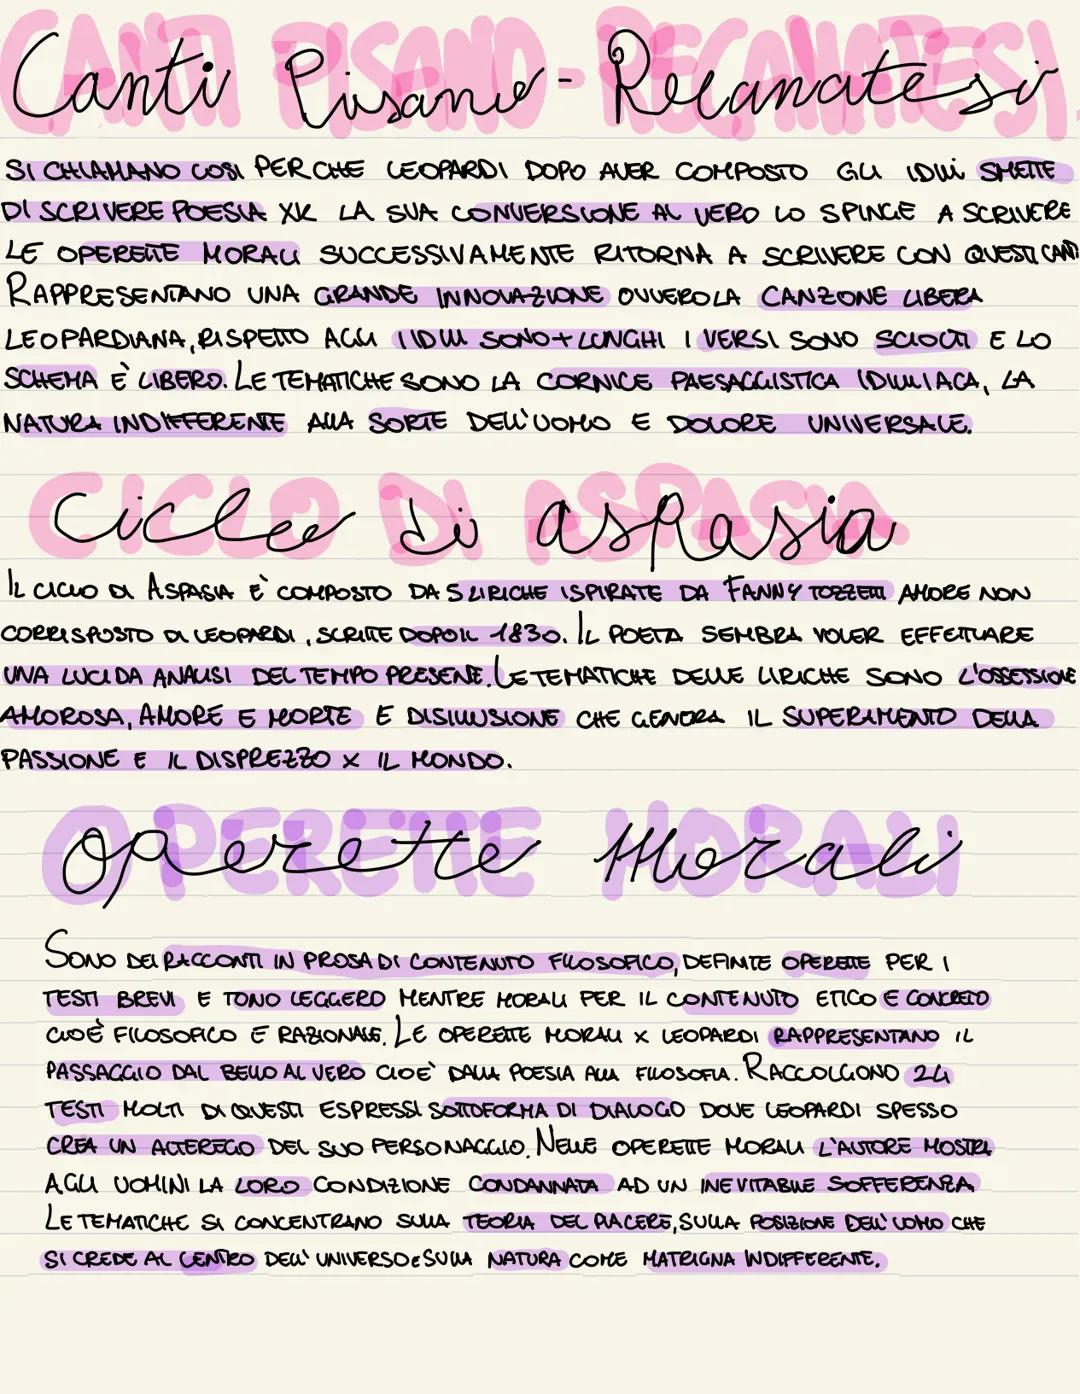 Canti Pisano-Recanatesi
SI CHIAMANO COSI PERCHE LEOPARDI DOPO AVER COMPOSTO GLI IDILLI SMETTE
DI SCRIVERE POESIA XK LA SUA CONVERSIONE AL VERO LO SPINGE A SCRIVERE
LE OPERETTE MORALI SUCCESSIVAMENTE RITORNA A SCRIVERE CON QUESTI CANTI
RAPPRESENTANO UNA GRANDE INNOVAZIONE OVVERO LA CANZONE LIBERA
LEOPARDIANA, RISPETTO AGLI IIDILLI SONO + LUNGHI I VERSI SONO SCIOLTI E LO
SCHEMA E' LIBERO. LE TEMATICHE SONO LA CORNICE PAESAGGISTICA IDILLIACA, LA
NATURA INDIFFERENTE ALLA SORTE DELL'UOMO E DOLORE UNIVERSALE.
Ciclo di aspasia
IL CICLO DI ASPASIA E' COMPOSTO DA 5 LIRICHE ISPIRATE DA FANNY TOZZETTI AMORE NON
CORRISPOSTO DI LEOPARDI, SCRITTE DOPO IL 1830. IL POETA SEMBRA VOLER EFFETTUARE
UNA LUCIDA ANALISI DEL TEMPO PRESENE. LE TEMATICHE DELLE LIRICHE SONO L'OSSESSIONE
AMOROSA, AMORE E MORTE E DISILLUSIONE CHE GENERA IL SUPERAMENTO DELLA
PASSIONE E IL DISPREZZO X IL MONDO.
Operette Morali
SONO DEI RACCONTI IN PROSA DI CONTENUTO FILOSOFICO, DEFINITE OPERETTE PER I
TESTI BREVI E TONO LEGGERO MENTRE MORALI PER IL CONTENUTO ETICO E CONCRETO
CIOÈ FILOSOFICO E RAZIONALE. LE OPERETTE MORALI X LEOPARDI RAPPRESENTANO IL
PASSAGGIO DAL BELLO AL VERO CIOE' DALLA POESIA ALLA FILOSOFIA. RACCOLGONO 24
TESTI MOLTI DI QUESTI ESPRESSI SOTTOFORMA DI DIALOGO DOVE LEOPARDI SPESSO
CREA UN ALTEREGO DEL SUO PERSONAGGIO. NELLE OPERETTE MORALI L'AUTORE MOSTRA
AGLI UOMINI LA LORO CONDIZIONE CONDANNATA AD UN INEVITABILE SOFFERENZA
LE TEMATICHE SI CONCENTRANO SULLA TEORIA DEL PIACERE, SULLA POSIZIONE DELL'UOMO CHE
SI CREDE AL CENTRO DELL'UNIVERSO E SULLA NATURA COME MATRIGNA INDIFFERENTE.